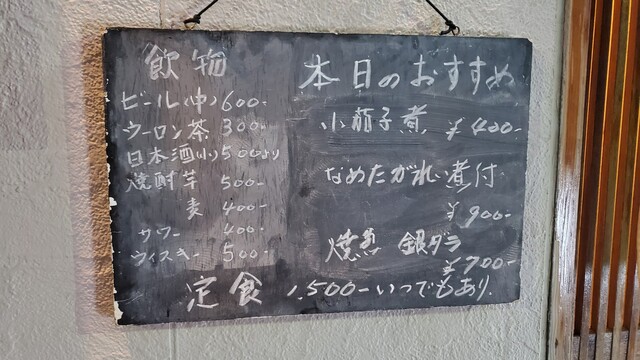 飲物
ビール(中) 600-
ウーロン茶 300-
日本酒(小) 500より
焼酎芋 500-
麦 400-
サワー 400-
ウィスキー 500-
本日のおすすめ
小茄子煮 ¥400-
なめたがれい煮付
¥900-
焼魚 銀ダラ
¥700-
定食 1,500-いつでもあり.